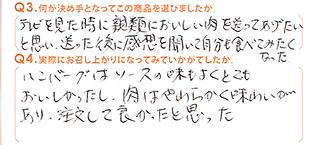 Q3.何が決め手となってこの商品を選びましたか。
テレビを見た時に親類においしい肉を送ってあげたい
と思い、送った後に感想を聞いて自分も食べてみたく
なった
Q4.実際にお召し上がりになってみていかがでしたか。
ハンバーグはソースの味もよくとても
おいしかったし、肉はやわらかく味わいが
あり、注文して良かったと思った